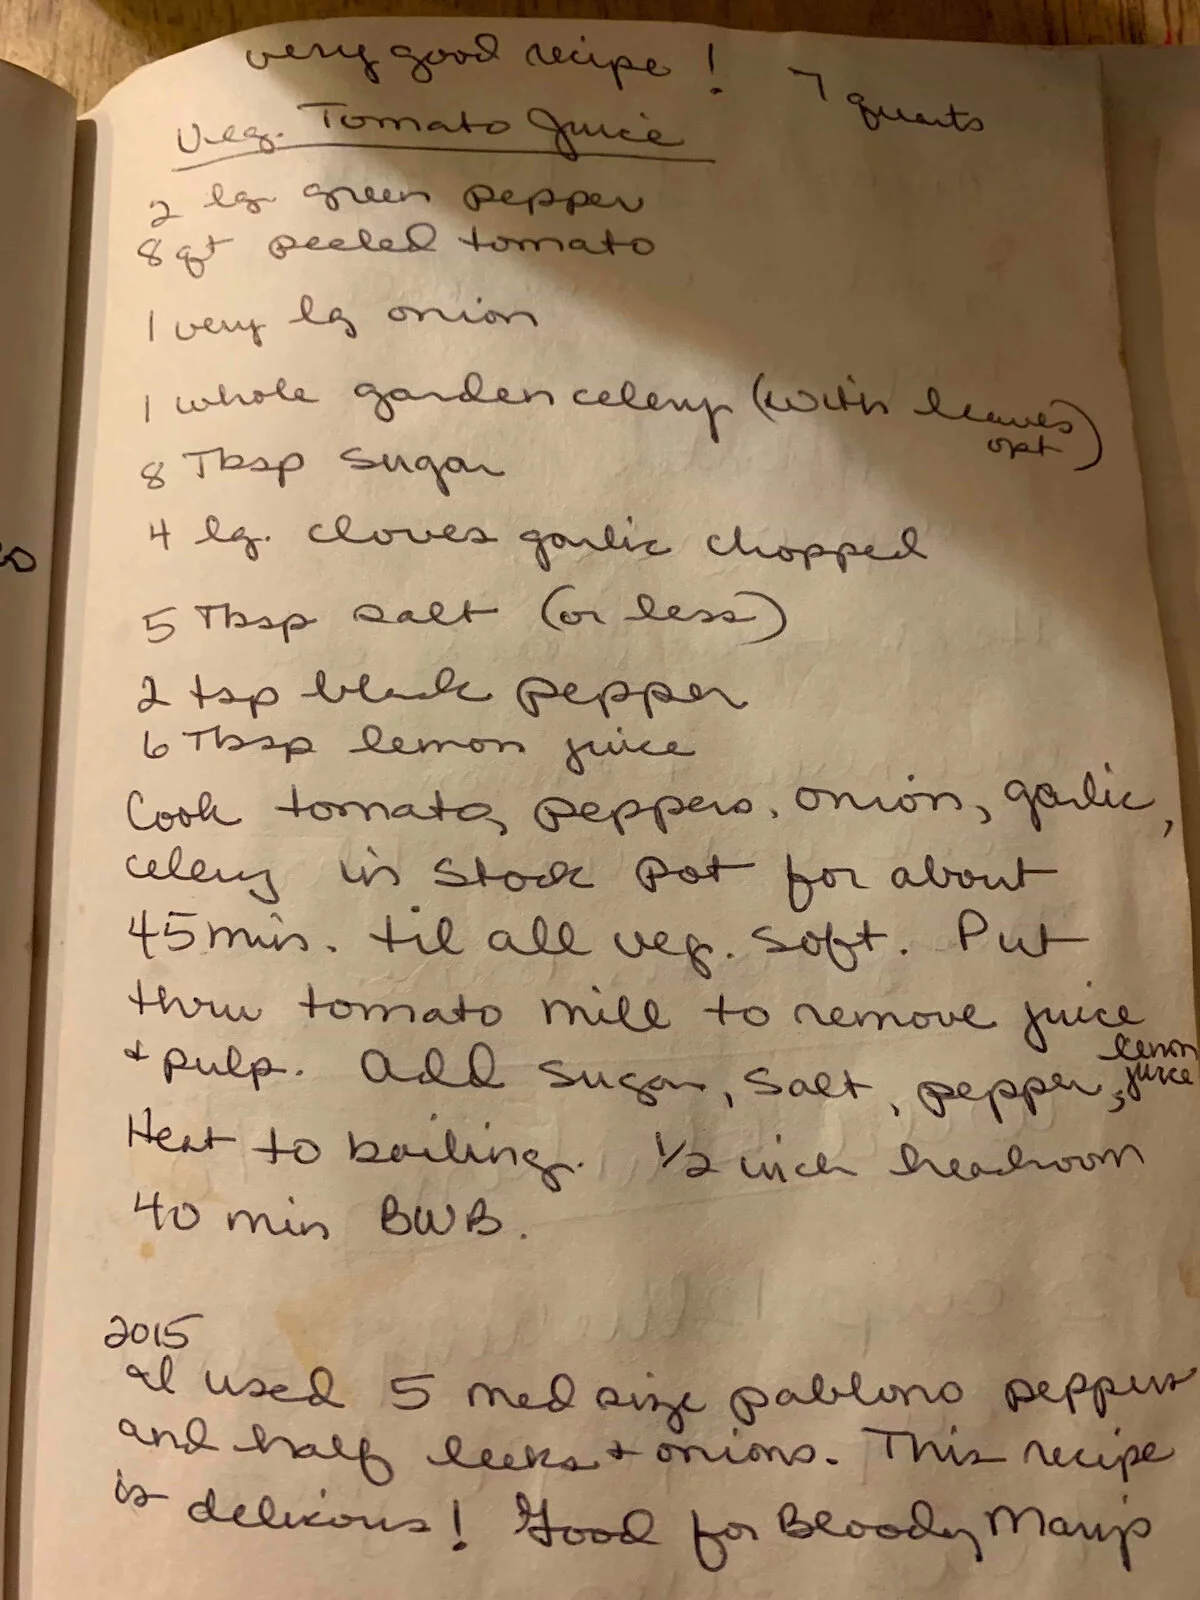 very good recipe!
7 quarts
Veg. Tomato Juice
2 lg. green pepper
8 qt peeled tomato
1 very lg onion
1 whole garden celery (with leaves opt)
8 Tbsp sugar
4 lg. cloves garlic chopped
5 Tbsp salt (or less)
2 tsp black pepper
6 Tbsp lemon juice
Cook tomato, peppers, onion, garlic,
celery in stock pot for about
45 min. til all veg. soft. Put
thru tomato mill to remove juice
+ pulp. Add sugar, salt, pepper, lemon juice
Heat to boiling. 1/2 inch headroom
40 min BWB.
2015
al used 5 med size pablono peppers
and half leeks + onions. This recipe
is delicious! Good for Bloody Marys